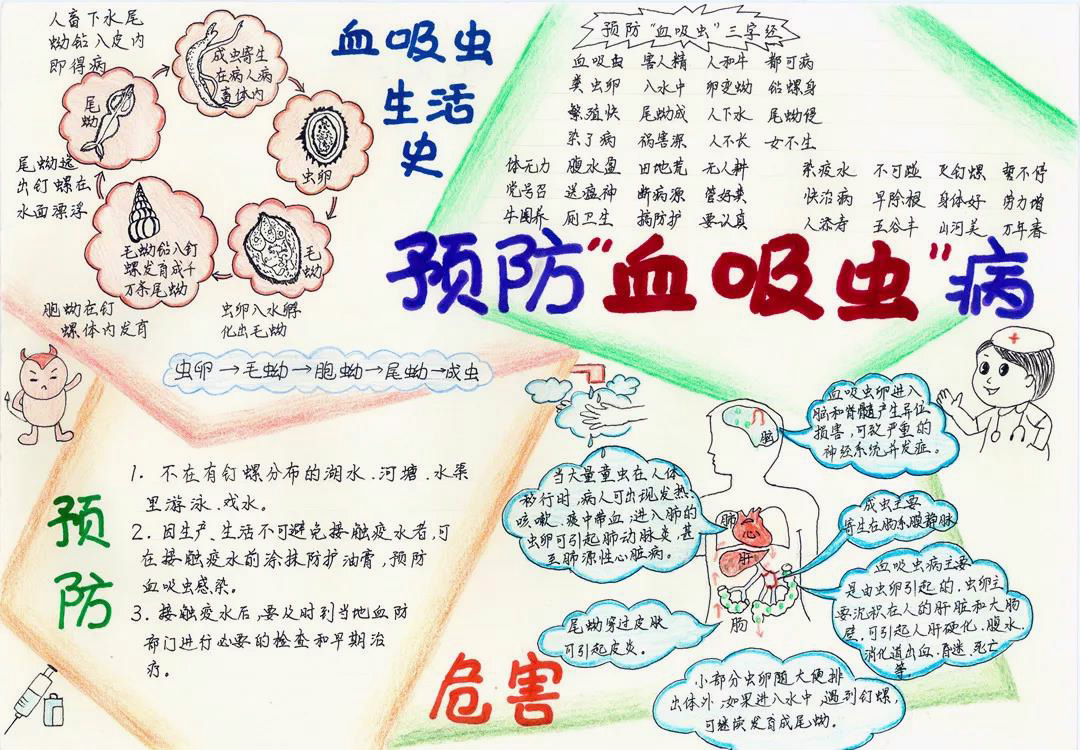 人畜下水尾
蚴钻入皮内
即得病
成虫寄生
在病人病
畜体内
尾
蚴
虫卵
尾蚴逸
出钉螺在
水面漂浮
毛蚴钻入钉
螺发育成千
万条尾蚴
毛
蚴
胞蚴在钉
螺体内发育
虫卵入水孵
化出毛蚴
虫卵→毛蚴→胞蚴→尾蚴→成虫
血吸虫
生活
史
预防“血吸虫”三字经
血吸虫 害人精 人和牛 都可病
粪虫卵 入水中 卵变蚴 钻螺身
繁殖快 尾蚴成 人下水 尾蚴侵
染了病 祸害深 人不长 女不生
体无力 腹水盈 田地荒 无人耕
党号召 送瘟神 断病源 管好粪
牛圈养 厕卫生 搞防护 要认真
染疫水 不可碰 灭钉螺 暂不停
快治病 早除根 身体好 劳力增
人添寿 五谷丰 山河美 万年春
预防“血吸虫”病
预
防
1. 不在有钉螺分布的湖水、河塘、水渠
里游泳、戏水。
2. 因生产、生活不可避免接触疫水者,可
在接触疫水前涂抹防护油膏,预防
血吸虫感染。
3. 接触疫水后,要及时到当地血防
部门进行必要的检查和早期治
疗。
危害
当大量童虫在人体
移行时,病人可出现发热、
咳嗽、痰中带血,进入肺的
虫卵可引起肺动脉炎,甚
至肺源性心脏病。
尾蚴穿过皮肤
可引起皮炎。
脑
肺
心
肝
肠
血吸虫卵进入
脑和脊髓产生异位
损害,可致严重的
神经系统并发症。
成虫主要
寄生在肠系膜静脉
血吸虫病主要
是由虫卵引起的,虫卵主
要沉积在人的肝脏和大肠
壁,可引起人肝硬化、腹水、
消化道出血、昏迷、死亡
等
小部分虫卵随大便排
出体外,如果进入水中,遇到钉螺,
可继续发育成尾蚴。